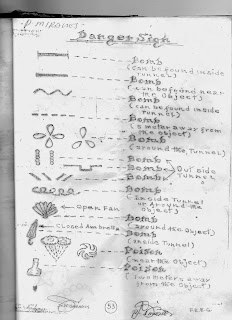 P. MIRONES
Danger Sign
Bomb
(can be found inside
Tunnel)
Bomb
(can be found near
the Object)
Bomb
(can be found inside
Tunnel)
Bomb
meter away from
the object)
Bomb
(around the Tunnel)
Bomb
Bomb Out side
Bomb Tunnel
Bomb
(Inside Tunnel
or Around the
Object)
Open Fan Bomb
(around the Object)
Closed Ambrella Bomb
(inside Tunnel)
Poison
(near the Object)
Poison
(Two meters away
from the Object)
53